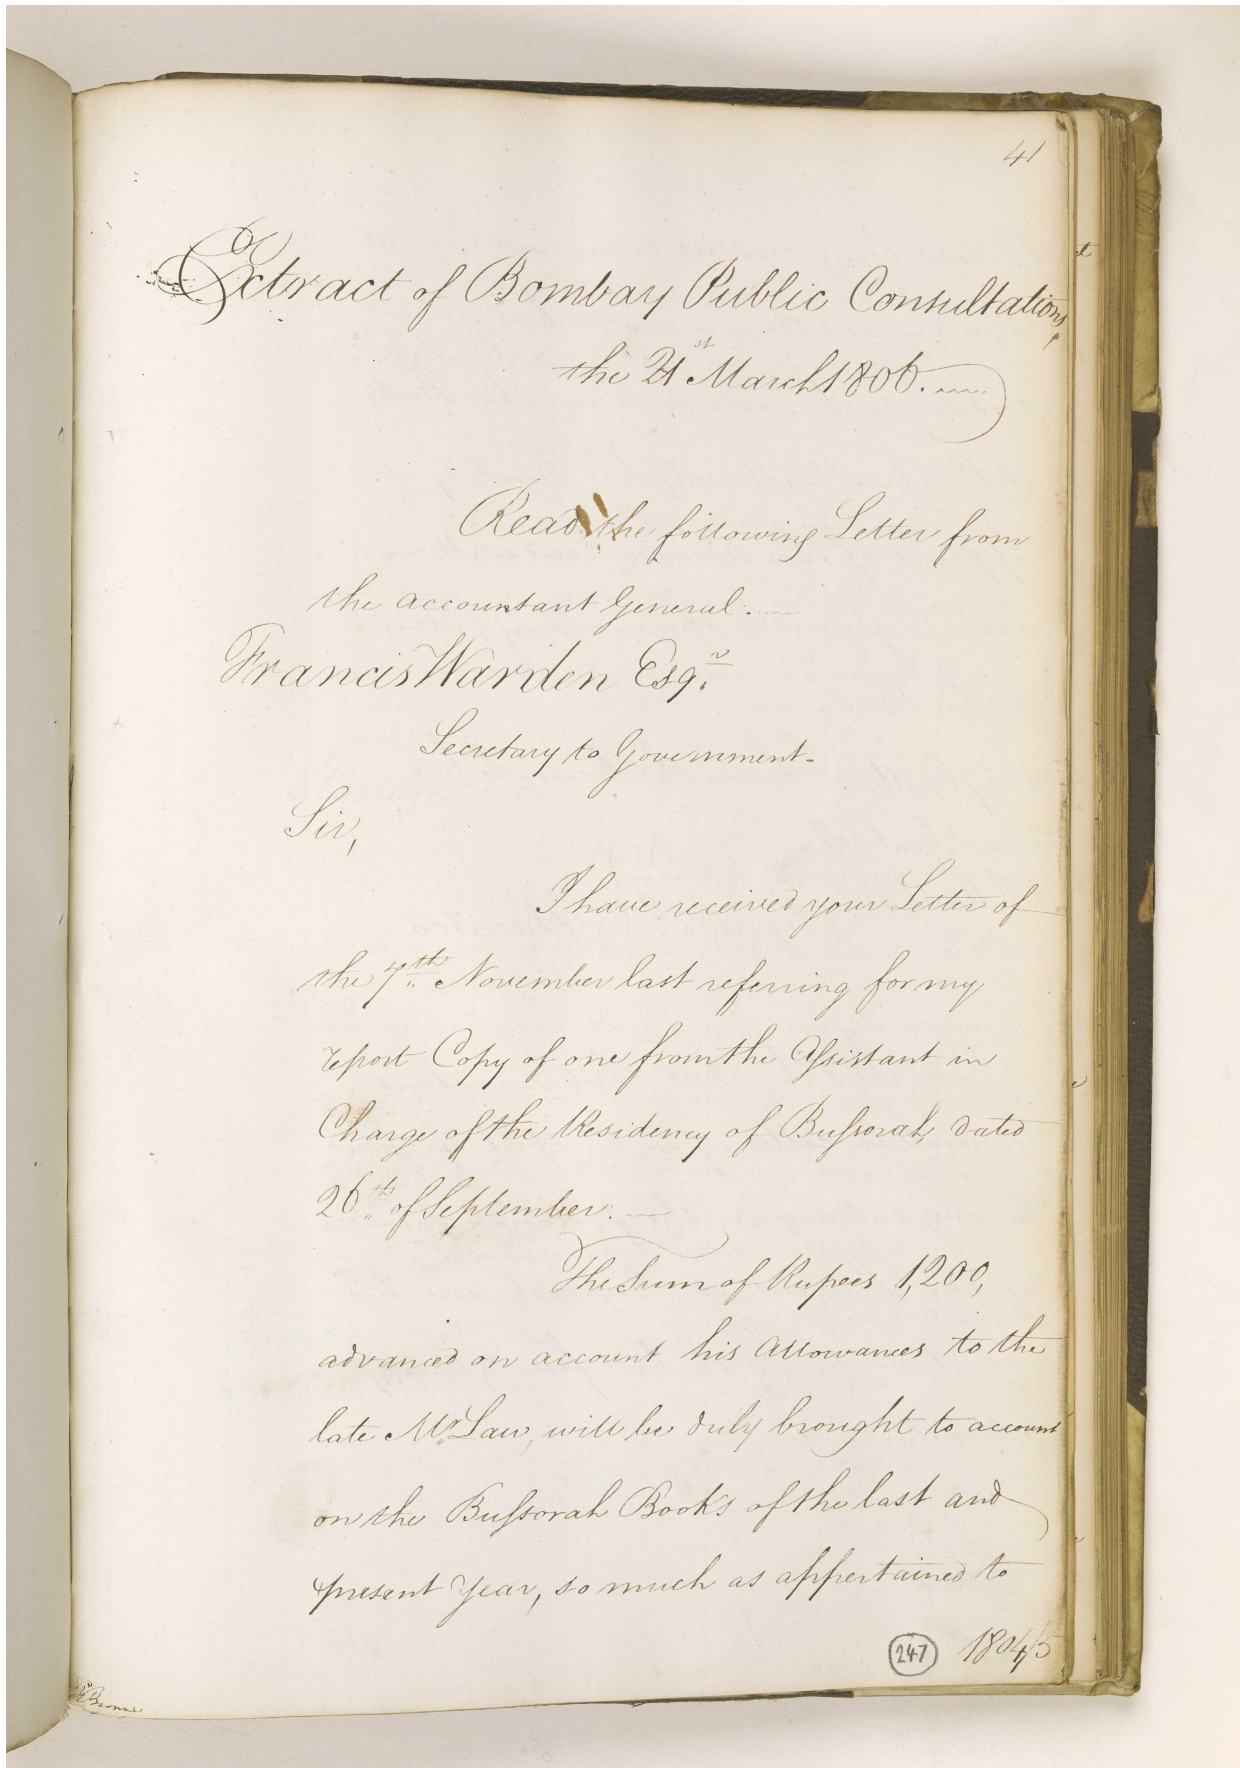 41
Extract of Bombay Public Consultations,
the 21st March 1806.
Read the following Letter from
the Accountant General.
Francis Warden Esqr.
Secretary to Government-
Sir,
I have received your Letter of
the 7th November last referring for my
report Copy of one from the Assistant in
Charge of the Residency of Bussorah, dated
26th of September.
The Sum of Rupees 1,200,
advanced on account his Allowances to the
late Mr. Law, will be duly brought to account
on the Bussorah Books of the last and
present Year, so much as appertained to
1804/5
247
Browne